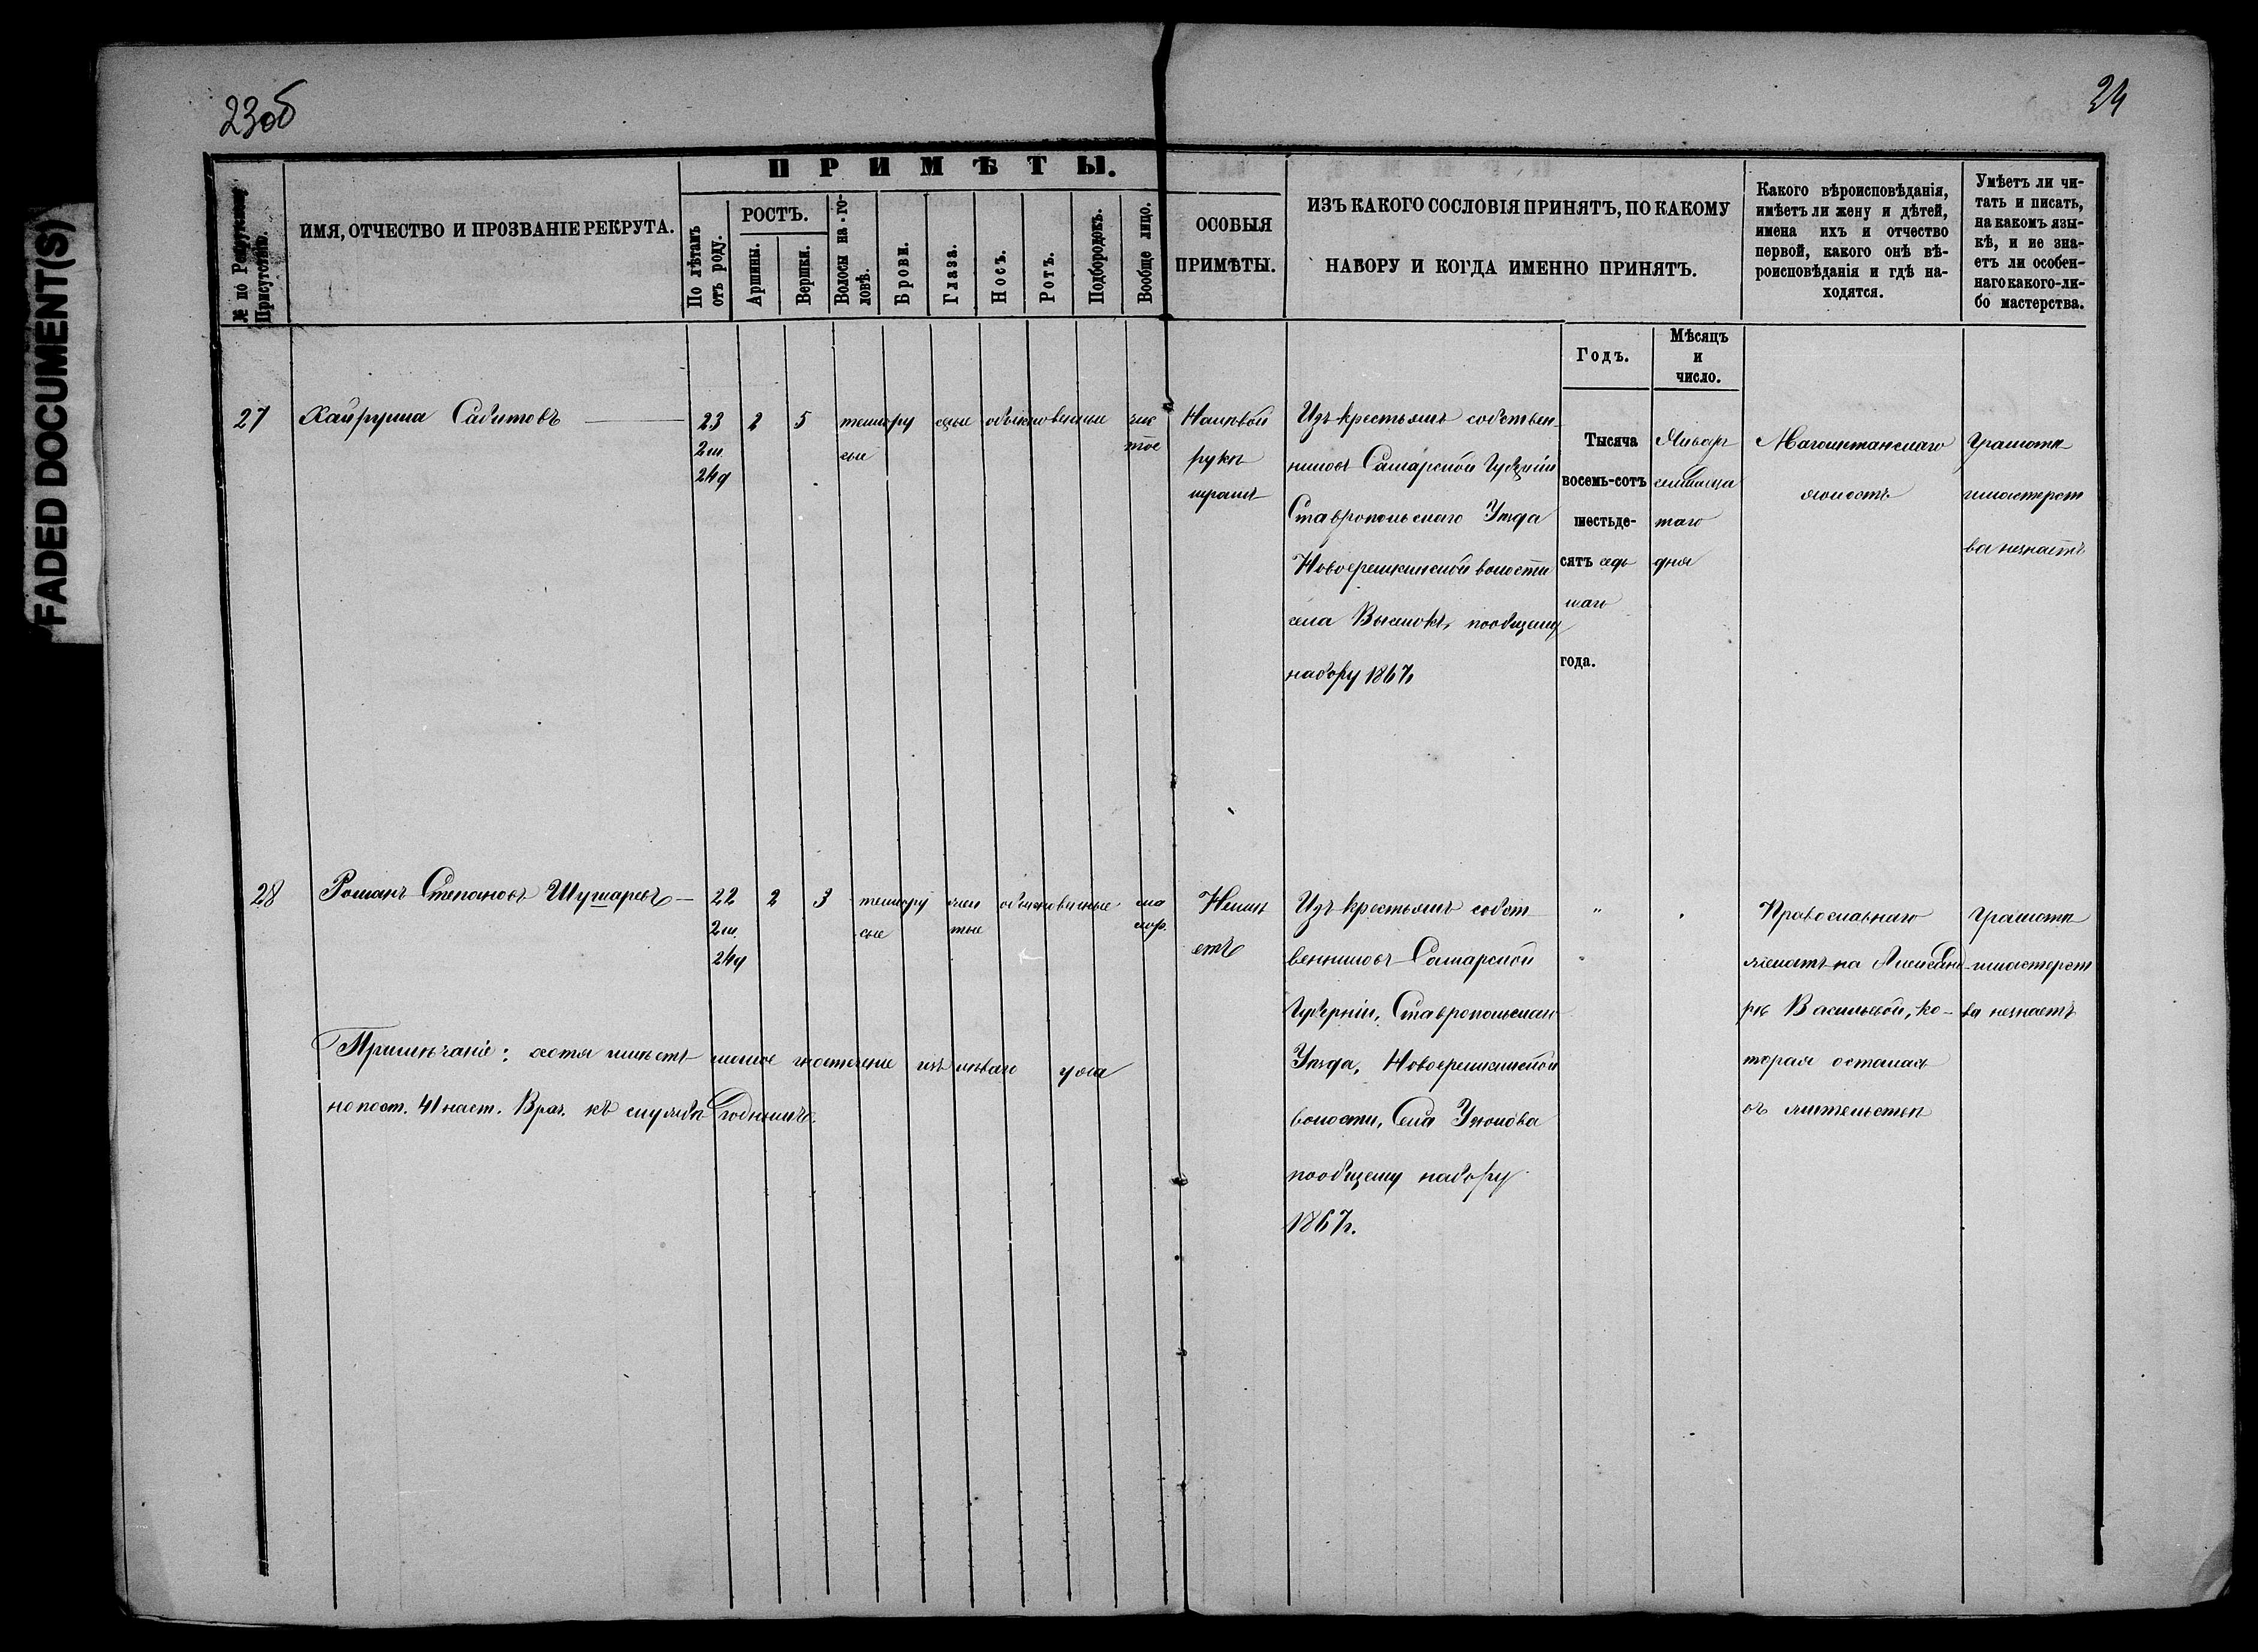 FADED DOCUMENT(S)
23об
24
ПРИМѢТЫ.
№ по Рекрутскому Присутствію.
ИМЯ, ОТЧЕСТВО И ПРОЗВАНІЕ РЕКРУТА.
По лѣтамъ отъ роду.
РОСТЪ.
Аршины.
Вершки.
Волосы на голо-
вѣ.
Брови.
Глаза.
Носъ.
Ротъ.
Подбородокъ.
Вообще лицо.
ОСОБЫЯ
ПРИМѢТЫ.
ИЗЪ КАКОГО СОСЛОВІЯ ПРИНЯТЪ, ПО КАКОМУ
НАБОРУ И КОГДА ИМЕННО ПРИНЯТЪ.
Годъ.
Мѣсяцъ
и
число.
Какого вѣроисповѣданія,
имѣетъ ли жену и дѣтей,
имена ихъ и отчество
первой, какого онѣ вѣ-
роисповѣданія и гдѣ на-
ходятся.
Умѣетъ ли чи-
тать и писать,
на какомъ язы-
кѣ, и не зна-
етъ ли особен-
наго какого-ли-
бо мастерства.
27
Хайрулла Сабитовъ
23
2м.
24д
2
5
темнору
сые
обыкновенные
чис
тое
На лѣвой
рукѣ
шрамъ
Изъ крестьянъ собствен-
никовъ Самарской Губерніи
Ставропольскаго Уѣзда
Новоерыклинской волости
села Выселокъ, пообщему
набору 1867г
Тысяча
восемь-сотъ
шестьде-
сятъ седь
маго
года.
Январ
таго
дня
Магометанскаго
холостъ
Грамотѣ
имастерст
ва незнаетъ
28
Романъ Степановъ
22
2м.
24д
2
3
темнору
сые
обыкновенные
Неимѣ
етъ
Изъ крестьянъ собст
венниковъ Самарской
Губерніи, Ставропольскаго
Уѣзда, Новоерыклинской
волости, Села
пообщему набору
1867г.
"
"
Православнаго
женатъ на Александ
рѣ Васильевой, ко-
торая осталась
въ жительствѣ
Грамотѣ
имастерст
ва незнаетъ
Примѣчаніе: хотя имѣетъ малое изъ лѣваго уха
но пост. 41 наст. Врач. къ службѣ Годнымъ.